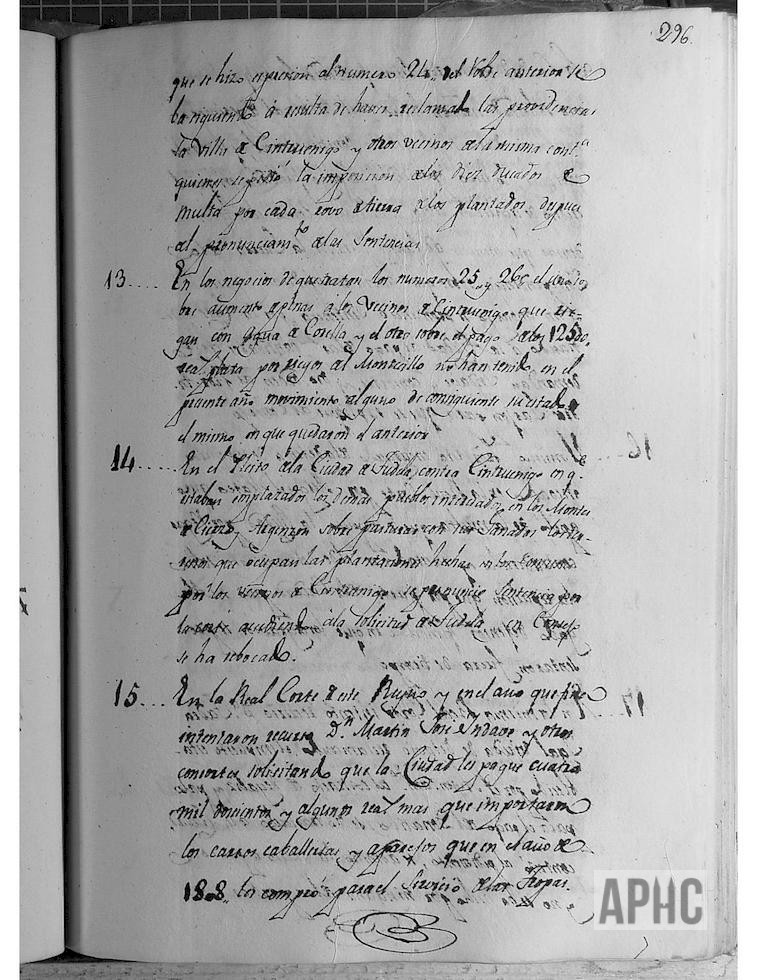 296.
que se hizo expresion al numero 24,, del Yble anterior se
ha siguiento á resulta de haver reclamado las providencias
la Villa de Cintruenigo y otros vecinos de la misma cont.ª
quienes se pidió la imposicion de los diez ducados de
multa por cada robo de tierra de los plantados despues
del pronunciam.to de las Sentencias
13.... En los negocios de que tratan los numeros 25,, y 26 el uno so-
bre aumento de penas a los Vecinos de Cintruenigo que rie-
gan con Agua de Corella, y el otro sobre el pago de los 12500,
rea.s plata por riegos del Montecillo no han tenido en el
presente año movimiento alguno de consiguiente su estado es
el mismo en que quedaron el anterior
14.... En el Pleito de la Ciudad de Tudela contra Cintruenigo en q.e
estaban emplazados los demas pueblos interesados en los Montes
de Cierzo y Argenzon sobre pasturar con sus Ganados los ter-
renos que ocupan las plantaciones hechas en
por los vecinos de Cintruenigo se pronunció Sentencia por
la Corte acudiendo á la solicitud de Tudela, en Consejo
se ha rebocado.
15... En la Real Corte de este Reyno y en el año que fine
intentaron recurso D.n Martin Jose de Yndave y otros
consortes solicitando que la Ciudad les pague cuatro
mil doscientos y algunos rea.s mas que importaron
los carros caballerias y aparejos que en el año de
1808,, les compró para el Servicio de las Tropas.
APHC